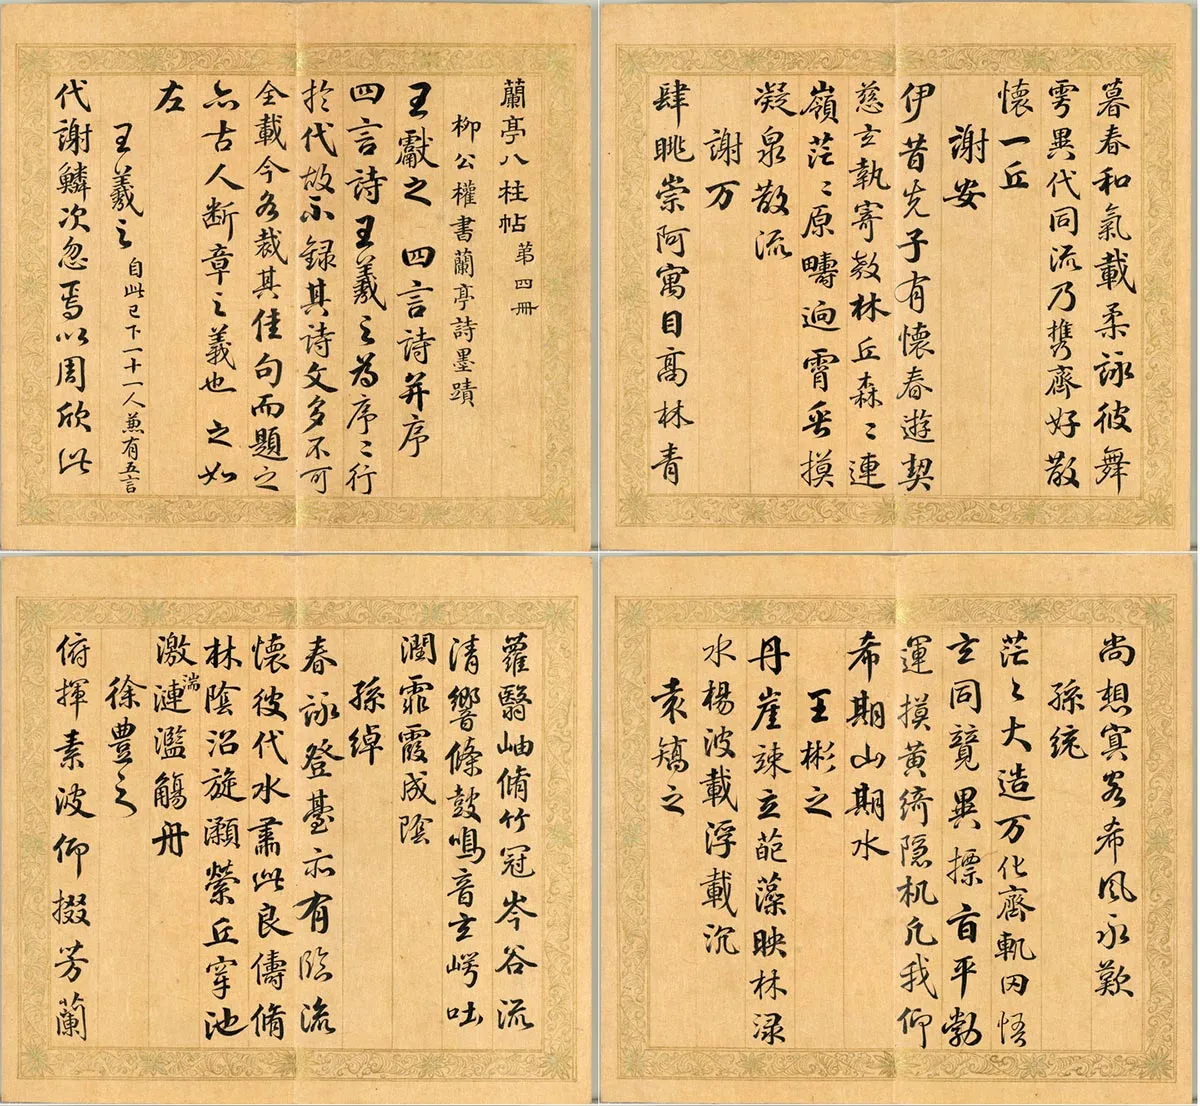 蘭亭八柱帖 第四冊
柳公權書蘭亭詩墨蹟
王獻之 四言詩并序
四言詩王羲之為序〻行
於代故不録其詩文多不可
全載今各裁其佳句而題之
亦古人断章之義也 之如
左
王羲之 自此已下一十一人兼有五言
代謝鱗次忽焉以周欣此
暮春和氣載柔詠彼舞
雩異代同流乃携齊好散
懷一丘
謝安
伊昔先子有懷春遊契
慈立執寄敖林丘森〻連
嶺茫〻原疇迥霄垂摸
凝泉散流
謝万
肆眺崇阿寓目高林青
蘿翳岫脩竹冠岑谷流
清響條鼓鳴音玄崿吐
潤霏霞成陰
孫綽
春詠登臺亦有臨流
懷彼代水肅此良儔脩
林陰沼旋瀨縈丘穿池
激湍漣濫觴舟
徐豐之
俯揮素波仰掇芳蘭
尚想冥客希風永歎
孫統
茫〻大造万化齊軌罔悟
玄同競異摽旨平勃
運摸黄綺隐机凡我仰
希期山期水
王彬之
丹崖竦立葩藻映林渌
水楊波載浮載沉
袁矯之